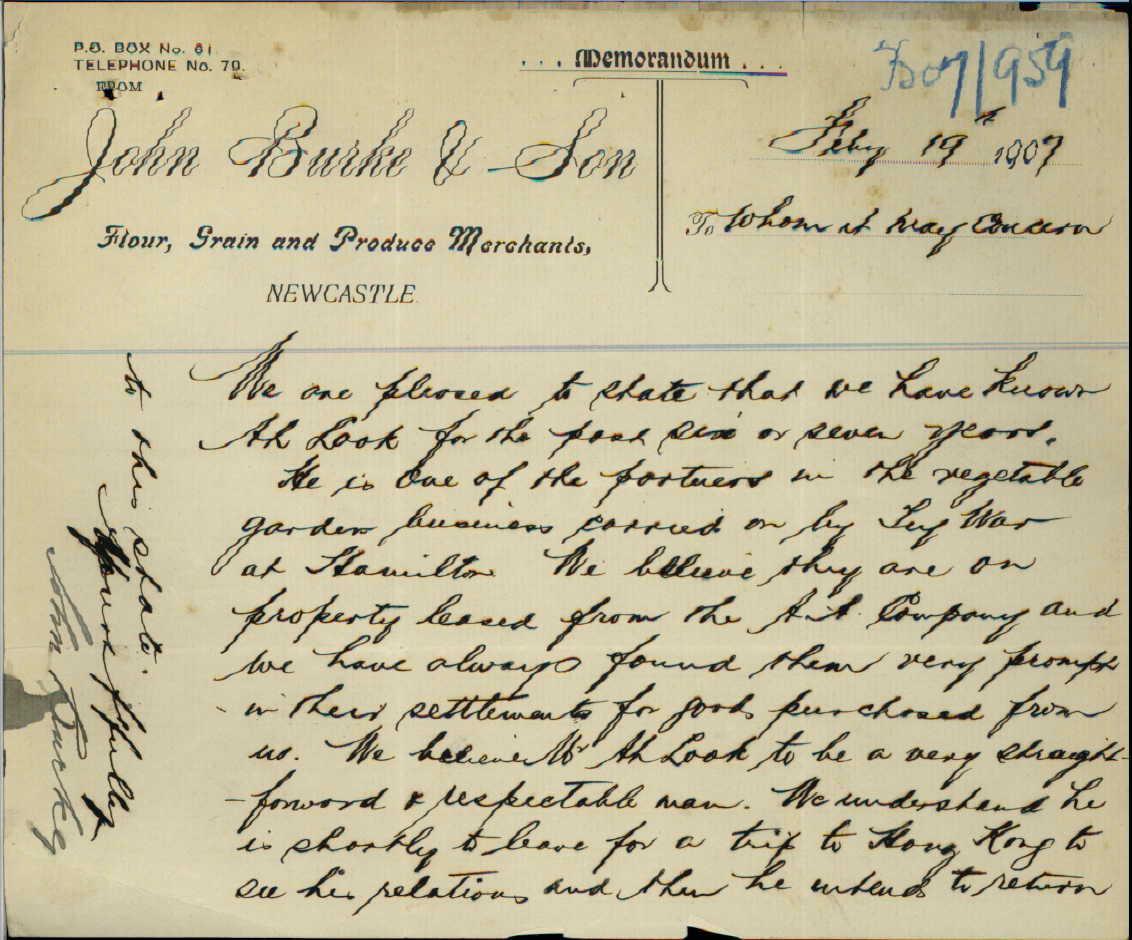 P.O. BOX No. 61.
TELEPHONE No. 79.
FROM
... Memorandum ...
B07/959
John Burke & Son
Flour, Grain and Produce Merchants,
NEWCASTLE.
Feby 19th 1907
To Whom it may Concern
We are pleased to state that we have known
Ah Look for the past six or seven years.
He is One of the partners in the vegetable
garden business carried on by War
at Hamilton We believe they are on
property leased from the A.A. Company and
we have always found them very prompt
in their settlements for goods purchased from
us. We believe Mr Ah Look to be a very straight-
-forward & respectable man. We understand he
is shortly to leave for a trip to Hong Kong to
see his relations and then he intends to return
to this state.
Yours ffully
John Burke